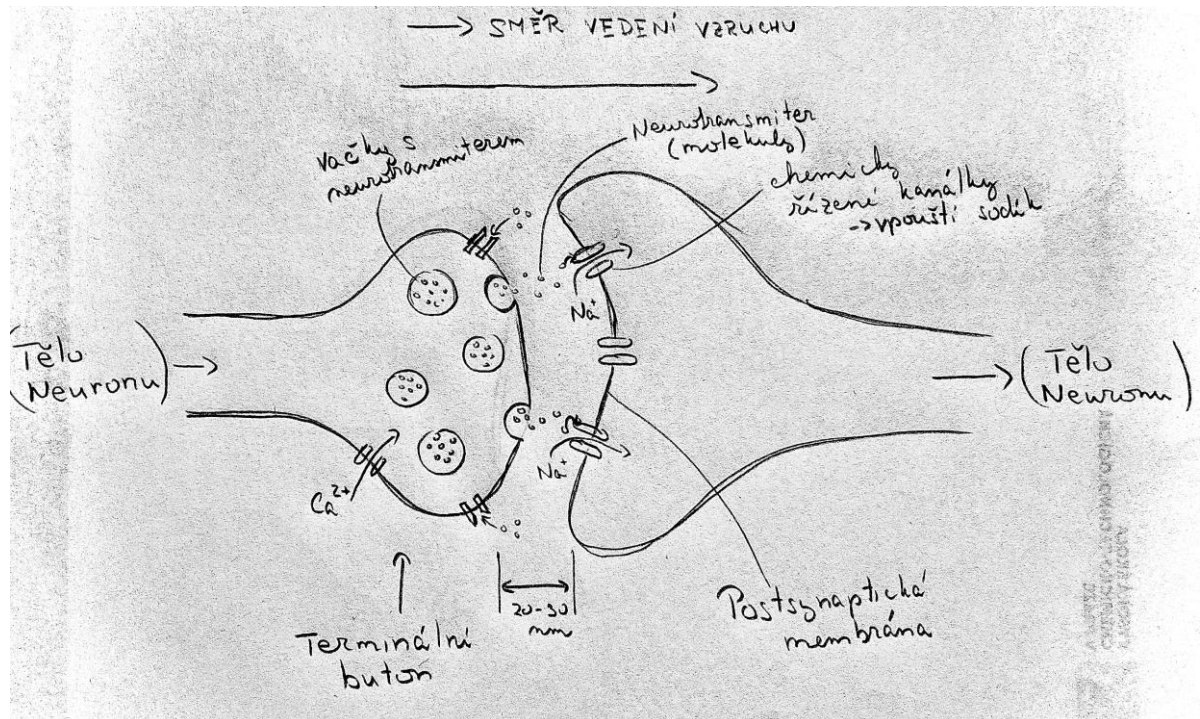 → SMĚR VEDENÍ VZRUCHU
Váčky s
neurotransmiterem
Neurotransmiter
(molekuly)
chemicky
řízené kanálky
→ vpouští sodík
Na⁺
(Tělo
Neuronu) →
→ (Tělo
Neuronu)
Na⁺
Ca²⁺
20-30
nm
Terminální
buton
Postsynaptická
membrána